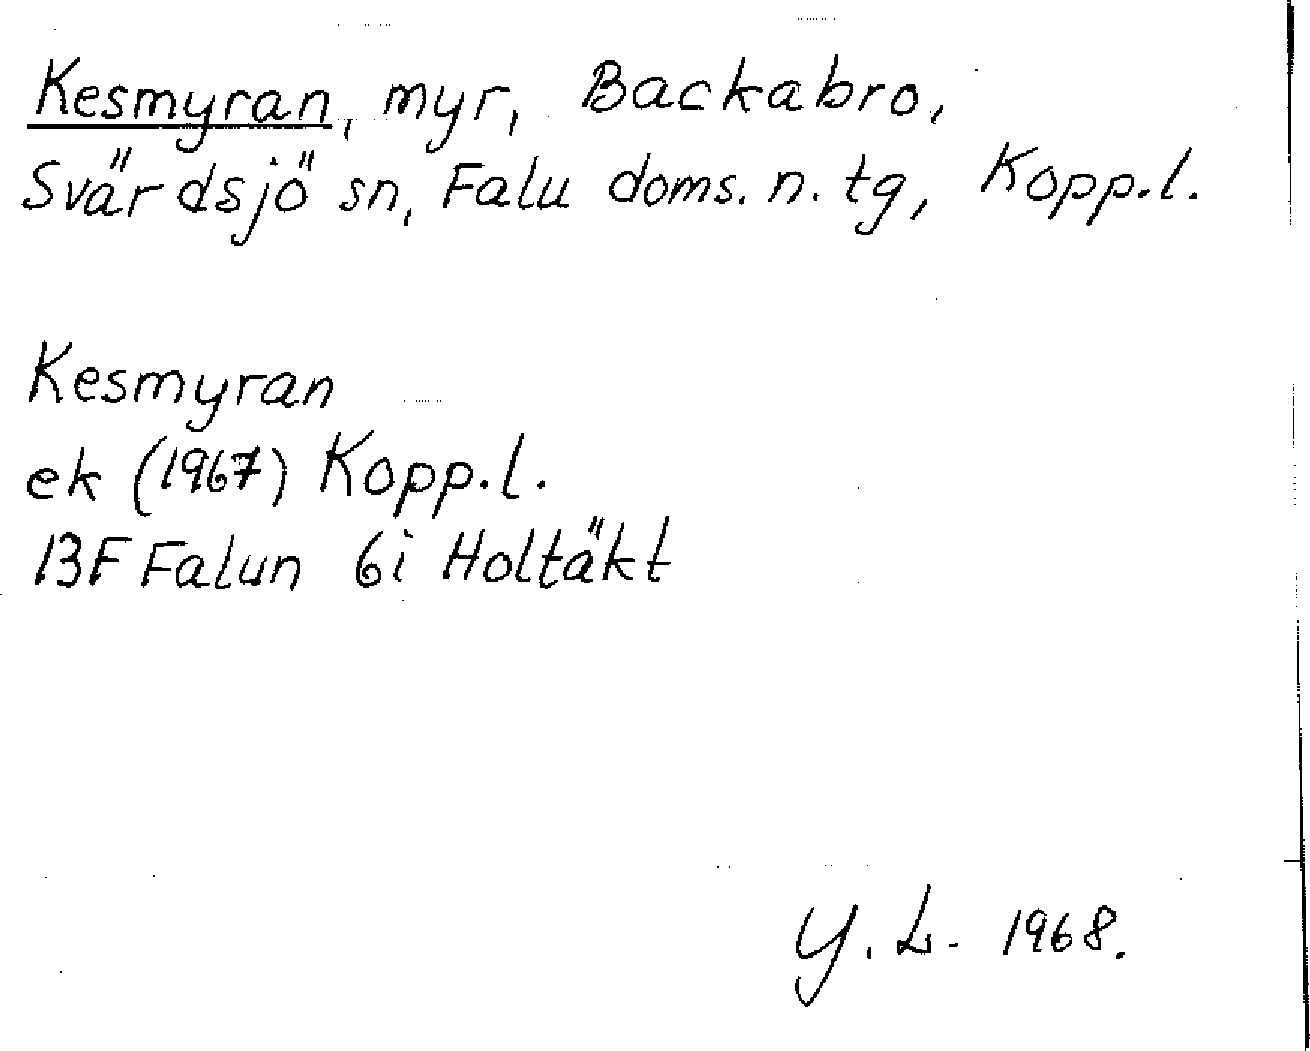 Kesmyran, myr, Backabro,
Svärdsjö sn, Falu doms. n. tg, Kopp.l.
Kesmyran
ek (1967) Kopp.l.
13F Falun 6i Holtäkt
Y. L. 1968.